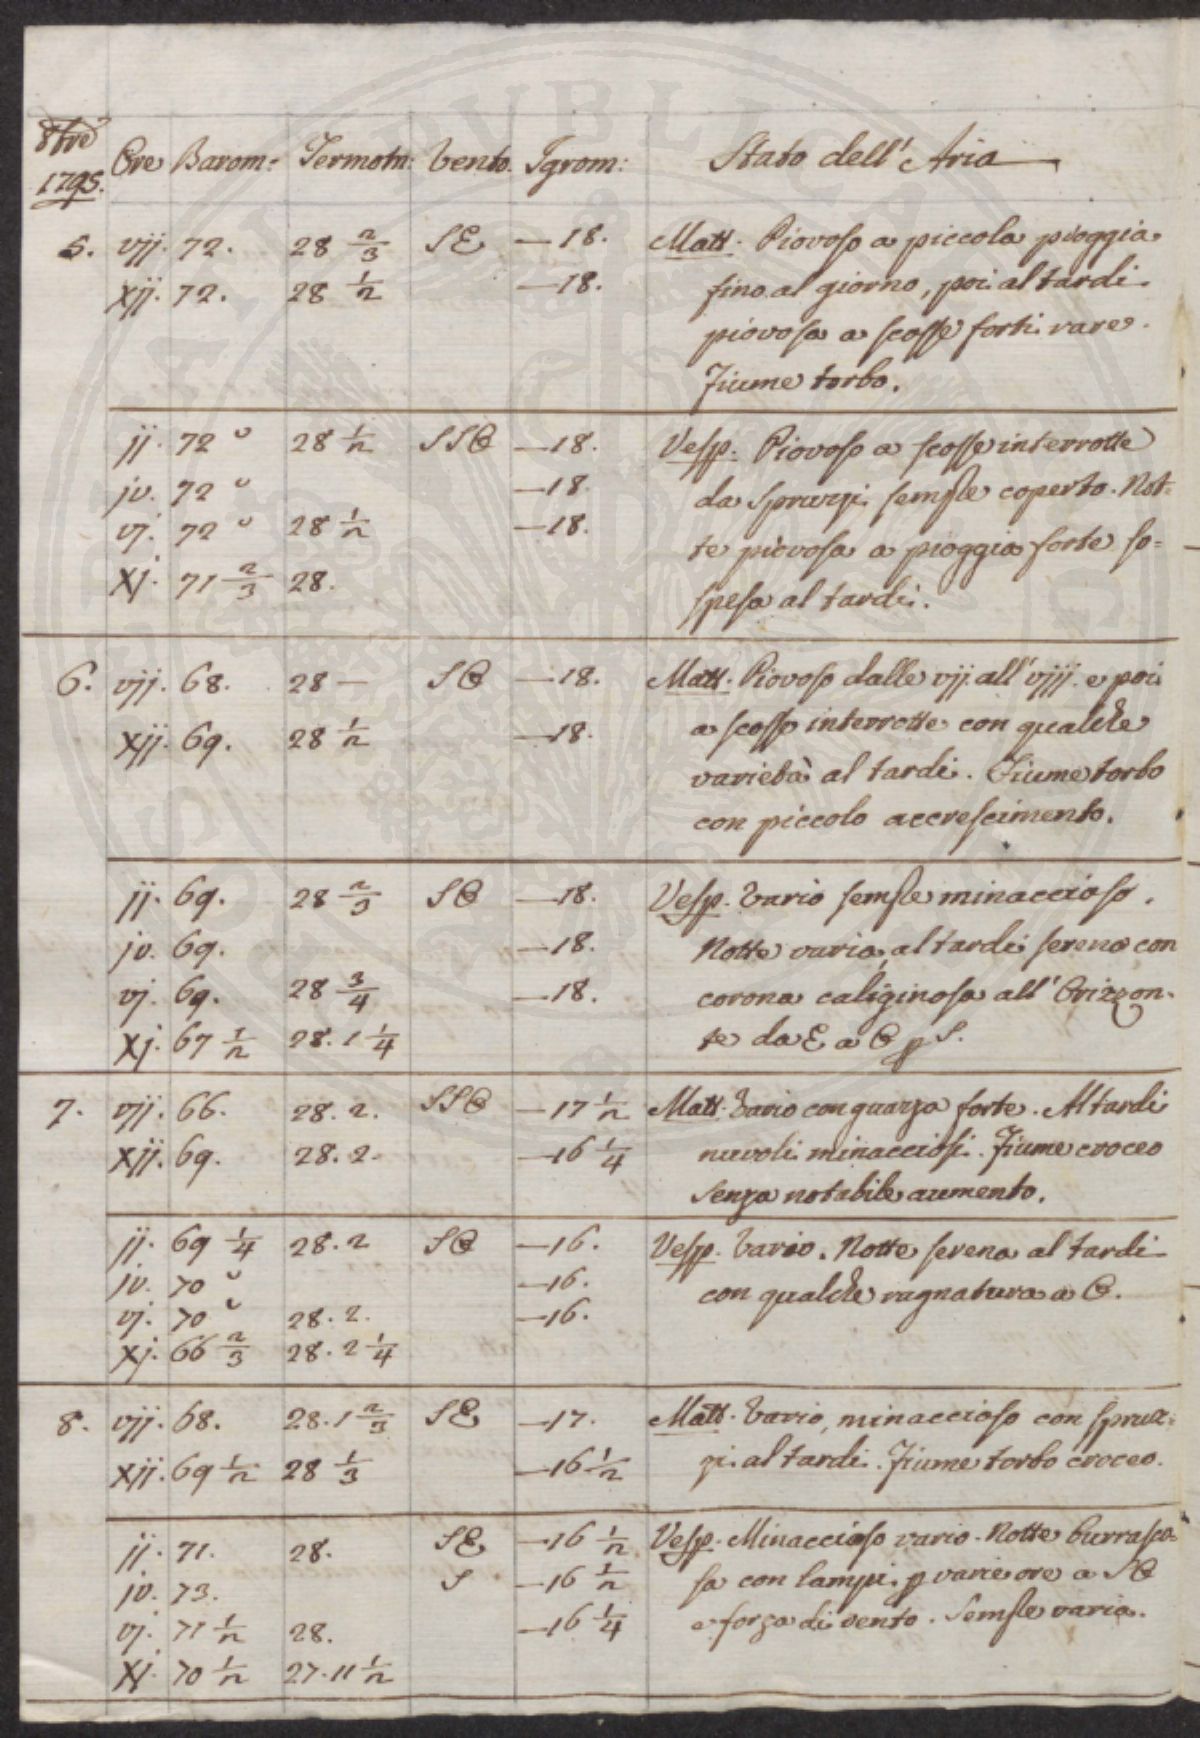 8bre 1795. Ore Barom: Termotr: Vento. Igrom: Stato dell' Aria
5. vij. 72. 28 2/3 SE —18. Matt. Piovoso a piccola pioggia
fino al giorno, poi al tardi
xij. 72. 28 1/2 —18.
piovosa a scosse forti rare.
Fiume torbo.
ij. 72 28 1/2 SSO —18. Vesp. Piovoso a scosse interrotte
iv. 72 —18. da spruzzi semp̱le coperto. Not=
vj. 72 28 1/2 —18. te piovosa a pioggia forte so=
xj. 71 2/3 28. spesa al tardi.
6. vij. 68. 28 — SO —18. Matt. Piovoso dalle vij. all' viij. e poi
xij. 69. 28 1/2 —18. a scosse interrotte con qualche
varietà al tardi. Fiume torbo
con piccolo accrescimento.
ij. 69. 28 2/3 SO —18. Vesp. Vario semple minaccioso.
iv. 69. —18. Notte varia, al tardi serena con
vj. 69. 28 3/4 —18. corona caliginosa all' Orizzon-
xj. 67 1/2 28. 1 1/4 te da E a O p S.
7. vij. 66. 28. 2. SSO —17 1/2 Matt. Vario con guazza forte. Al tardi
xij. 69. 28. 2. —16 1/4 nuvoli minacciosi. Fiume croceo
senza notabile aumento.
ij. 69 1/4 28. 2 SO —16. Vesp. Vario. Notte serena al tardi
iv. 70 —16. con qualche ragnatura a O.
vj. 70 28. 2. —16.
xj. 66 2/3 28. 2 1/4
8. vij. 68. 28. 1 2/3 SE —17. Matt. Vario, minaccioso con spruz-
xij. 69 1/2 28 1/3 —16 1/2 zi al tardi. Fiume torbo croceo.
ij. 71. 28. SE —16 1/2 Vesp. Minaccioso vario. Notte burrasco-
iv. 73. S —16 1/2 sa con lampi p varie ore a SO
vj. 71 1/2 28. —16 1/4 e forza di vento. Semple varia.
xj. 70 1/2 27. 11 1/2